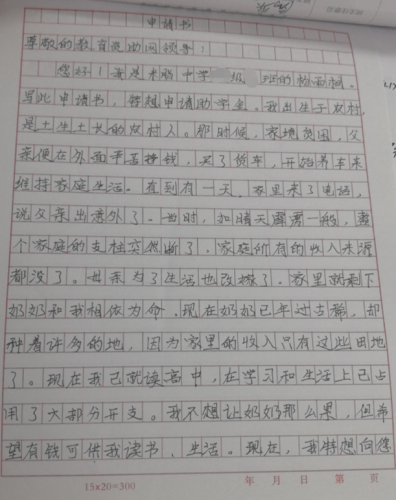 申请书
尊敬的教育资助网领导：
您好！我是来临中学 级 班的杨
写此申请书，特想申请助学金。我出生于农村，
是土生土长的农村人。那时候，家境贫困，父
亲便在外面辛苦挣钱，买了货车，开始养车来
维持家庭生活。直到有一天，家里来了电话，
说父亲出意外了。当时，如晴天霹雳一般，整
个家庭的支柱突然断了，家庭所有的收入来源
都没了。母亲为了生活也改嫁了，家里就剩下
奶奶和我相依为命，现在奶奶已年过古稀，却
种着许多的地，因为家里的收入只有这些田地
了。现在我已就读高中，在学习和生活上已占
用了大部分开支。我不想让奶奶那么累，但希
望有钱可供我读书，生活。现在，我特想向您
15×20=300
年 月 日 第 页